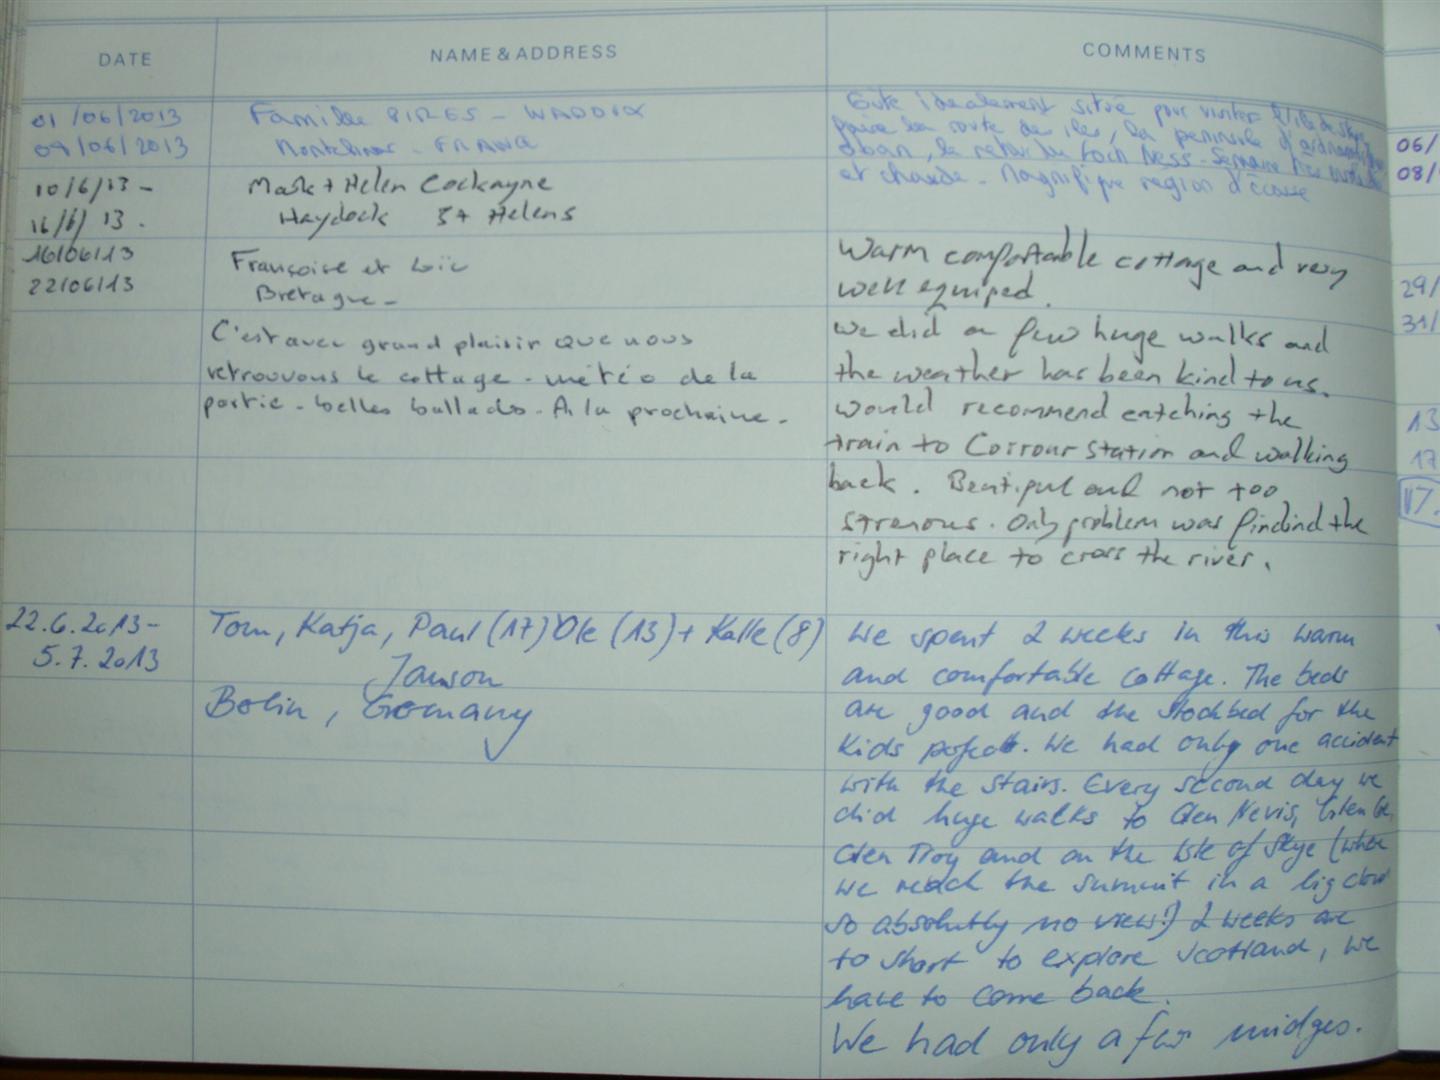 DATE
NAME & ADDRESS
COMMENTS
01/06/2013
09/06/2013
Famille PIRES - WADOUX
FRANCE
Gîte idéalement situé pour visiter l'île de Skye,
faire la route des îles, la péninsule d'ardnamurchan
oban, le retour du Loch Ness - Semaine très
et chaude - Magnifique région d'écosse
10/6/13 -
16/6/13.
Mark + Helen Cockayne
Haydock St Helens
16/06/13
22/06/13
Françoise et Loïc
Bretagne -
C'est avec grand plaisir que nous
retrouvons le cottage - météo de la
partie - belles ballades - A la prochaine -
Warm comfortable cottage and very
well equiped.
We did a few huge walks and
the weather has been kind to us.
Would recommend catching the
train to Corrour Station and walking
back. Beautiful and not too
strenous. Only problem was findind the
right place to cross the river.
22.6.2013-
5.7.2013
Tom, Katja, Paul (17) Ole (13) + Kalle (8)
Janson
Berlin, Germany
We spent 2 weeks in this warm
and comfortable cottage. The beds
are good and the stockbed for the
Kids perfect. We had only one accident
with the stairs. Every second day we
did huge walks to Glen Nevis, Glen Coe,
Glen Roy and on the Isle of Skye (where
we reach the summit in a big cloud
so absolutly no view!) 2 weeks are
to short to explore Scotland, we
have to come back.
We had only a few midges.
06/
08/
29/
31/
13
17
17.